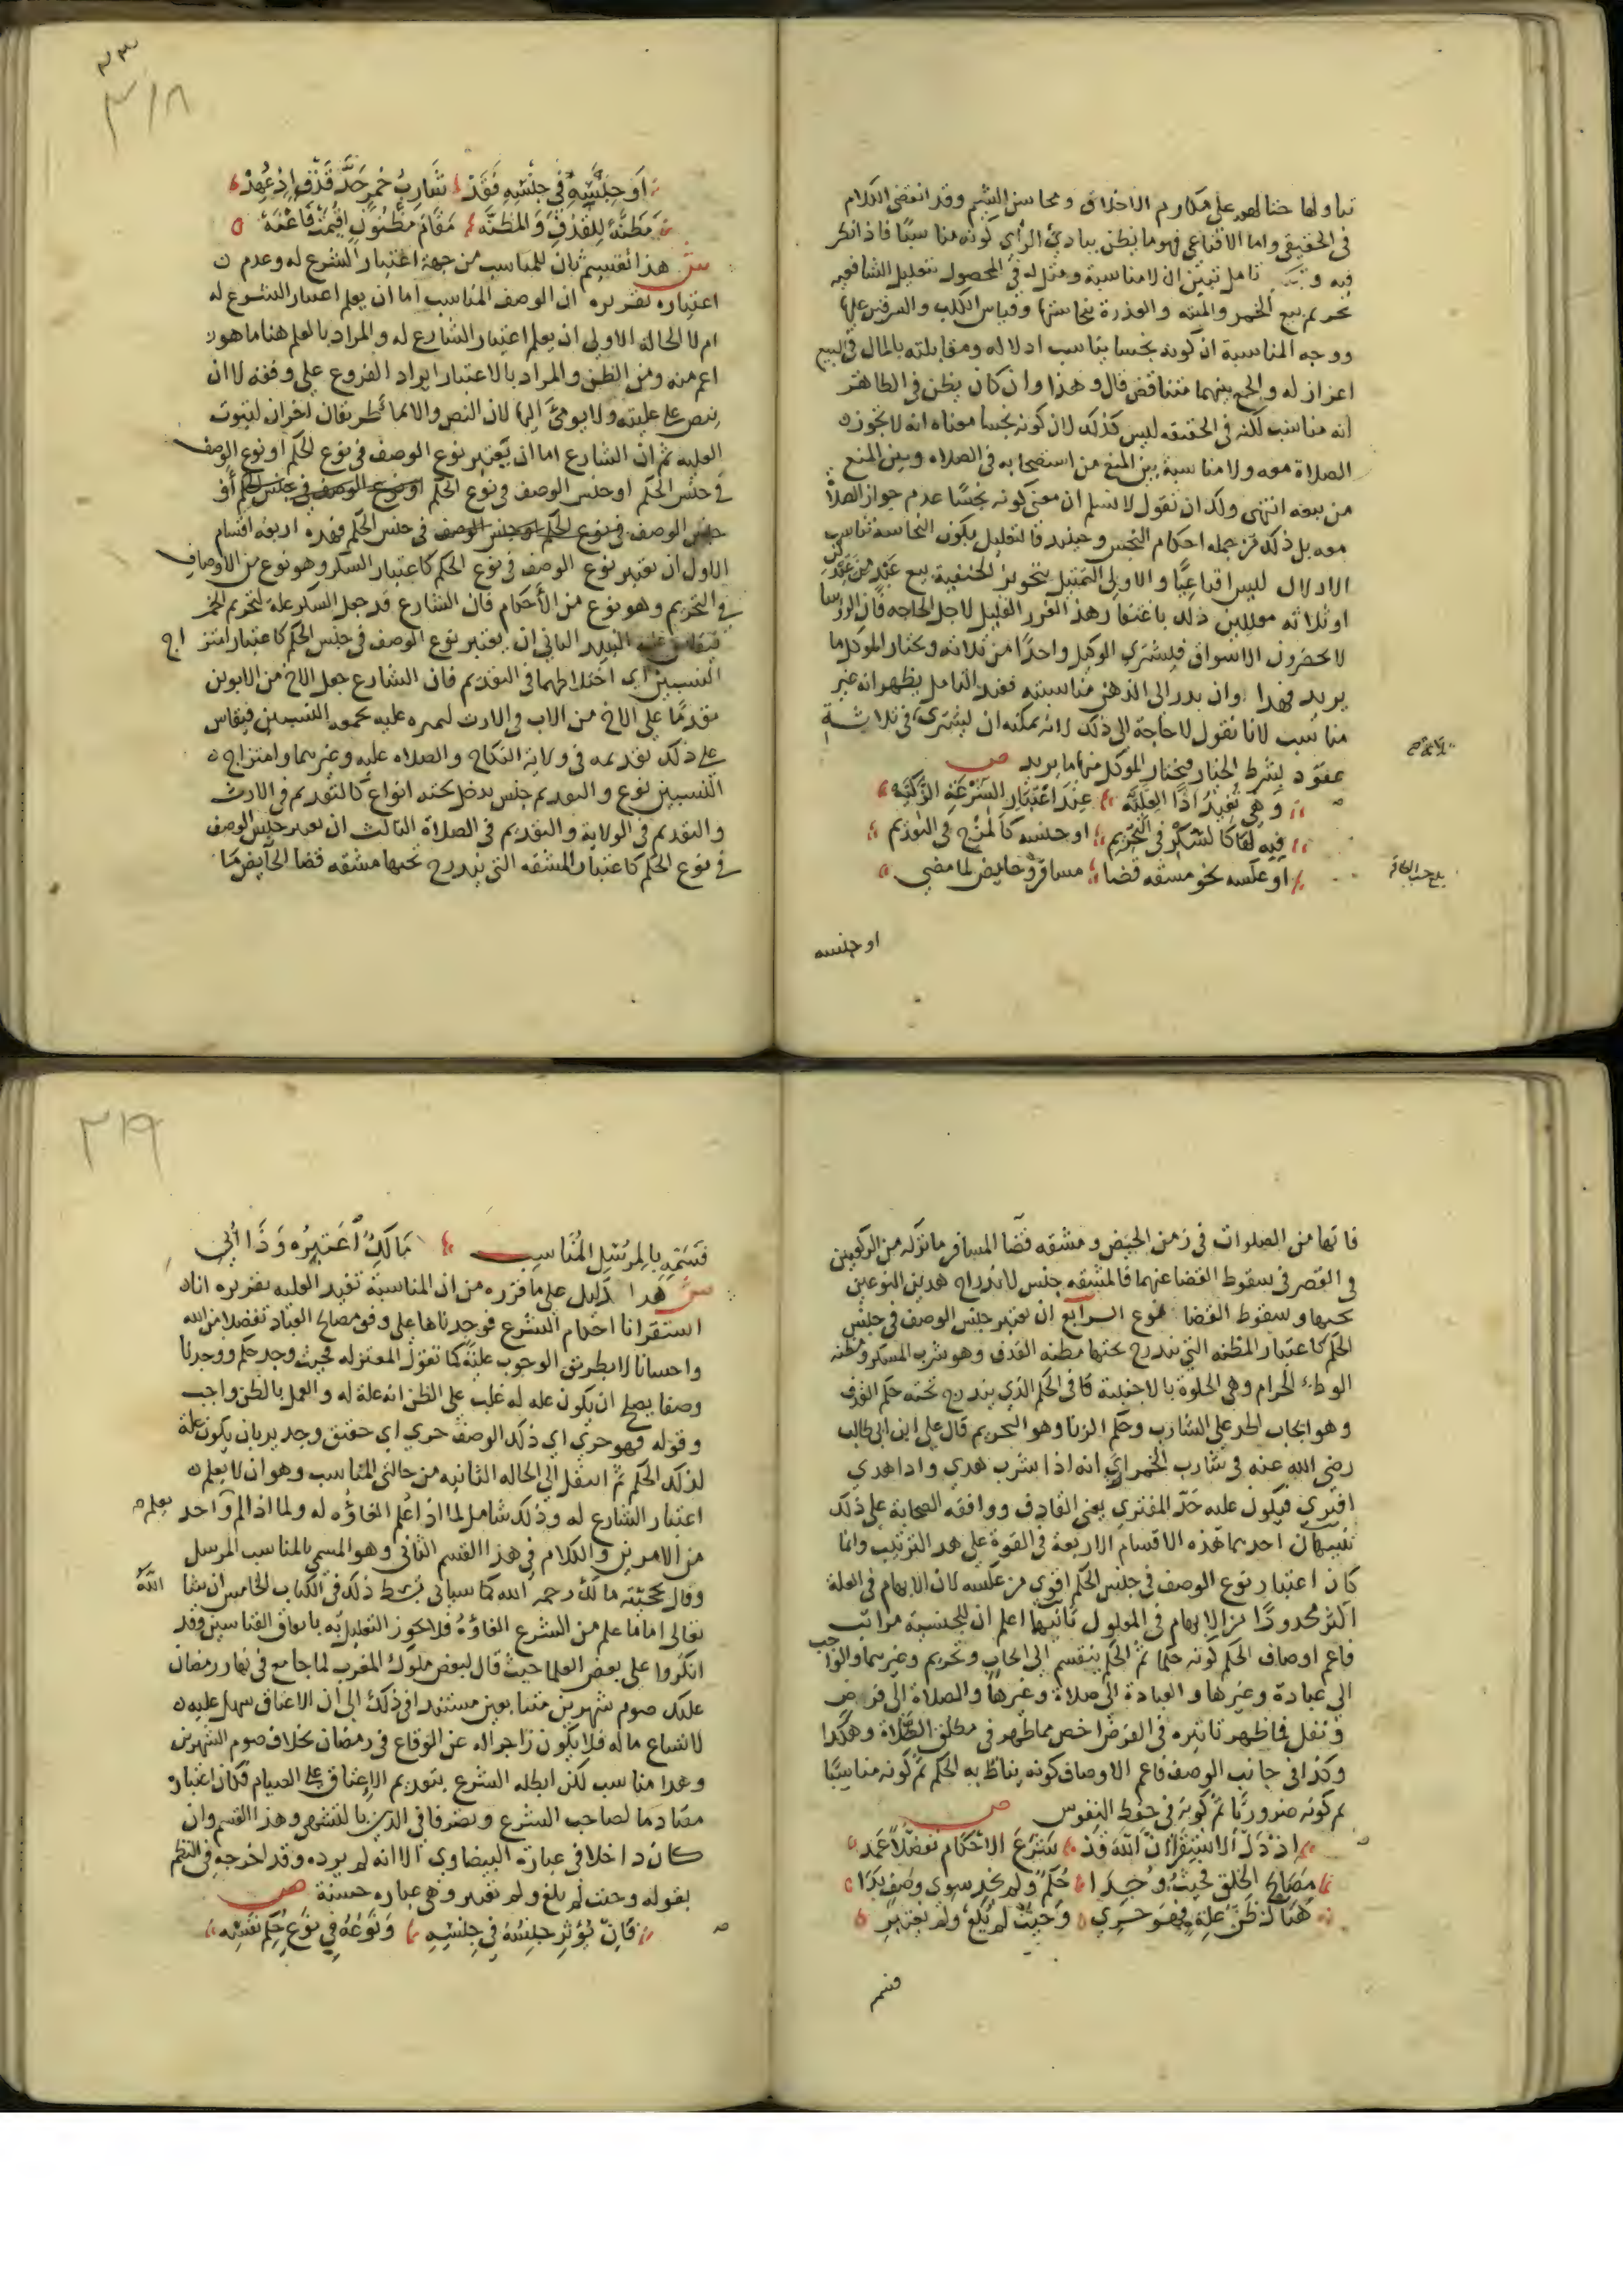 تناولها حثا لهم على مكارم الاخلاق ومحاسن الشيم وقد انقضى الكلام
في الحقيقي واما الاقناعي فهو ما يظن ببادئ الرأي كونه مناسبا فاذا نظر
فيه تامل تبين انه لا مناسبة ومثل له في المحصول بتعليل الشافعيه
تحريم بيع الخمر والميته والعذرة بنجاستها وقياس الكلب والسرقين عليها
ووجه المناسبة ان كونه نجسا يناسب اذلاله ومقابلته بالمال في البيع
اعزاز له والجمع بينهما متناقض قال وهذا وان كان يظن في الظاهر
انه مناسب لكنه في الحقيقه ليس كذلك لان كونه نجسا معناه انه لا تجوز
الصلاة معه ولا مناسبة بين المنع من استصحابه في الصلاه وبين المنع
من بيعه انتهى ولك ان تقول لا نسلم ان معنى كونه نجسا عدم جواز الصلاة
معه بل ذلك من جملة احكام النجس وحينئذ فالتعليل بكون النجاسة تناسب
الاذلال ليس اقناعيا والاولى التمثيل بتجويز الحنفية بيع عبد من عبدين
او ثلاثه معللين ذلك باغتفار هذا الغرر القليل لاجل الحاجه فان الروسا
لا يحضرون الاسواق فيشتري الوكيل واحدا من ثلاثه ويختار الموكل ما
يريد فهذا وان بدر الى الذهن مناسبته فعند التامل يظهر انه غير
مناسب لانا نقول لا حاجة الى ذلك لانه يمكنه ان يشتري في ثلاثة
عقود بشرط الخيار ويختار الموكل منها ما يريد ص
وهي تفيد اذا العليه عند اعتبار الشرعة الزكيه
فيه لها كالسكر في التحريم او جنسه كالمزج في التقديم
او عكسه نحو مشقه قضا مسافر وحايض لما مضى
او جنسه
٣١٨
او جنسه في جنسه فقد شارب خمر حد قذف اذ عهد
مظنة للقذف والمظنه مقام مظنون اقيمت فاعنه
ش هذا تقسيم ثان للمناسب من جهة اعتبار الشرع له وعدم
اعتباره تقريره ان الوصف المناسب اما ان يعلم اعتبار الشرع له
ام لا الحالة الاولى ان يعلم اعتبار الشارع له والمراد بالعلم هنا ما هو
اعم منه ومن الظن والمراد بالاعتبار ايراد الفروع على وفقه لا ان
ينص على عليته ولا يومئ اليها لان النص والايما طريقان اخران لثبوت
العليه ثم ان الشارع اما ان يعتبر نوع الوصف في نوع الحكم او نوع الوصف
في جنس الحكم او جنس الوصف في نوع الحكم او نوع الوصف في جنس الحكم أو
جنس الوصف في نوع الحكم او جنس الوصف في جنس الحكم فهذه اربعة اقسام
الاول ان يعتبر نوع الوصف في نوع الحكم كاعتبار السكر وهو نوع من الاوصاف
في التحريم وهو نوع من الأحكام فان الشارع قد جعل السكر علة لتحريم الخمر
فيقاس عليه النبيذ الثاني ان يعتبر نوع الوصف في جنس الحكم كاعتبار امتزاج
النسبين اي اختلاطهما في التقديم فان الشارع جعل الاخ من الابوين
مقدما على الاخ من الاب في الارث لميزه عليه بجمعه النسبين فيقاس
على ذلك تقديمه في ولاية النكاح والصلاه عليه وغيرهما وامتزاج
النسبين نوع والتقديم جنس يدخل تحته انواع كالتقديم في الارث
والتقديم في الولاية والتقديم في الصلاة الثالث ان يعتبر جنس الوصف
في نوع الحكم كاعتبار المشقه التي يندرج تحتها مشقه قضا الحايض ما
فاتها من الصلوات في زمن الحيض ومشقه قضا المسافر ما تركه من الركعتين
في القصر في سقوط القضا عنهما فالمشقه جنس لاندراج هذين النوعين
تحتها وسقوط القضا نوع الرابع ان يعتبر جنس الوصف في جنس
الحكم كاعتبار المظنه التي يندرج تحتها مظنه القذف وهو شرب المسكر ومظنه
الوطء الحرام وهي الخلوة بالاجنبية في الحكم الذي يندرج تحته حكم القذف
وهو ايجاب الحد على الشارب وحكم الزنا وهو التحريم قال علي ابن ابي طالب
رضي الله عنه في شارب الخمر اري انه اذا شرب هذي واذا هذي
افترى فيكون عليه حد المفتري يعني القاذف ووافقه الصحابة على ذلك
تنبيهان احدهما هذه الاقسام الاربعة في القوة على هذا الترتيب وانما
كان اعتبار نوع الوصف في جنس الحكم اقوى من عكسه لان الابهام في العلة
اكثر محذورا من الابهام في المعلول ثانيهما اعلم ان للجنسية مراتب
فاعم اوصاف الحكم كونه حكما ثم الحكم ينقسم الى ايجاب وتحريم وغيرهما والواجب
الى عبادة وغيرها والعبادة الى صلاة وغيرها والصلاة الى فرض
ونفل فما ظهر تاثيره في الفرض اخص مما ظهر في مطلق الصلاة وهكذا
وكذا في جانب الوصف فاعم الاوصاف كونه يناط به الحكم ثم كونه مناسبا
ثم كونه ضروريا ثم كونه في حفظ النفوس ص
اذ دل الاستقراء ان الله قد شرع الاحكام تفضلا عمد
مصالح الخلق فحيث وجدا حكم ولم نجد سوى وصف بدا
هناك ظن علة فهو حري وحيث لم يلغ ولم يعتبر
فسمه
٣١٩
فسمه بالمرسل المناسب مالك اعتبره وذا أبي
ش هذا دليل على ما قرره من ان المناسبة تفيد العليه تقريره انا
استقرانا احكام الشرع فوجدناها على وفق مصالح العباد تفضلا من الله
واحسانا لا بطريق الوجوب عليه كما تقول المعتزله فحيث وجد حكم ووجدنا
وصفا يصلح ان يكون علة له غلب على الظن انه علة له والعمل بالظن واجب
وقوله فهو حري اي ذلك الوصف حري اي حقيق وجدير بان يكون علة
لذلك الحكم ثم انتقل الى الحاله الثانيه من حالتي المناسب وهو ان لا يعلم
اعتبار الشارع له وذلك شامل لما اذا علم الغاؤه له ولما اذا لم يعلم واحد
من الامرين والكلام في هذا القسم الثاني وهو المسمى بالمناسب المرسل
وقال بحجيته مالك رحمه الله كما سياتي بسط ذلك في الكتاب الخامس ان شا الله
تعالى اما ما علم من الشرع الغاؤه فلا يجوز التعليل به باتفاق القياسين وقد
انكروا على بعض العلما حيث قال لبعض ملوك المغرب لما جامع في نهار رمضان
عليك صوم شهرين متتابعين مستندا في ذلك الى ان الاعتاق سهل عليه
لاتساع ماله فلا يكون زاجرا له عن الوقاع في رمضان بخلاف صوم الشهرين
وهذا مناسب لكن ابطله الشرع بتقديم الاعتاق على الصيام فكان اعتباره
مصادما لصاحب الشرع وتصرفا في الدين بالتشهي وهذا القسم وان
كان داخلا في عبارة البيضاوي الا انه لم يرده وقد اخرجه في النظم
بقوله وحيث لم يلغ ولم يعتبر وهي عباره حسنة ص
فان يؤثر جنسه في جنسه ونوعه في نوع حكم نفسه